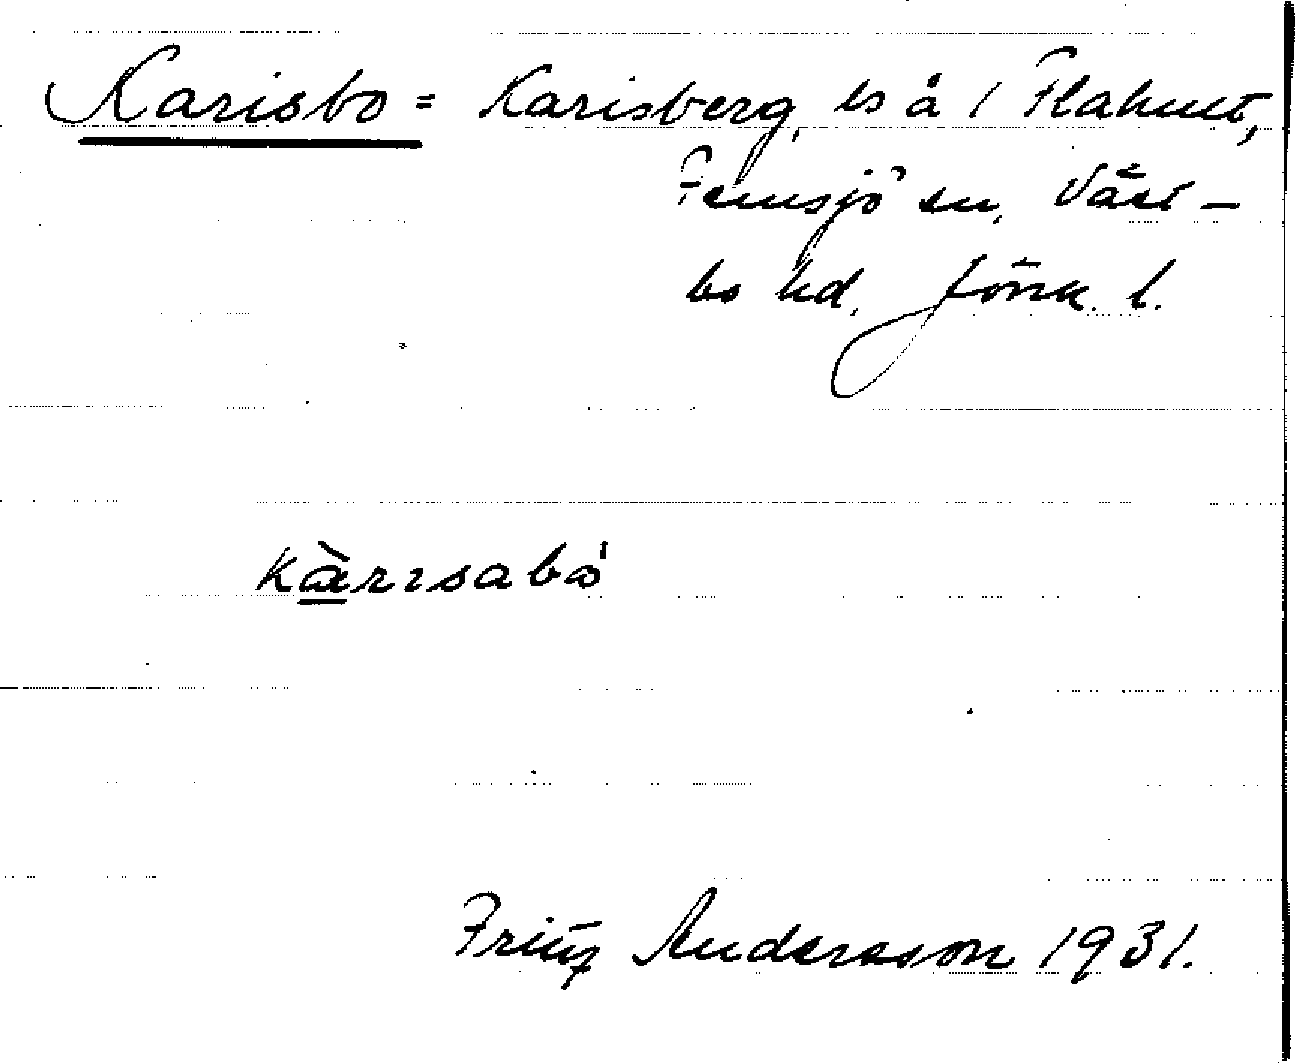 Karisbo = Karisberg, ls å / Flahult,
Femsjö sn, Väst-
bo hd, Jönk. l.
kàrısabǿ
Fritz Andersson 1931.